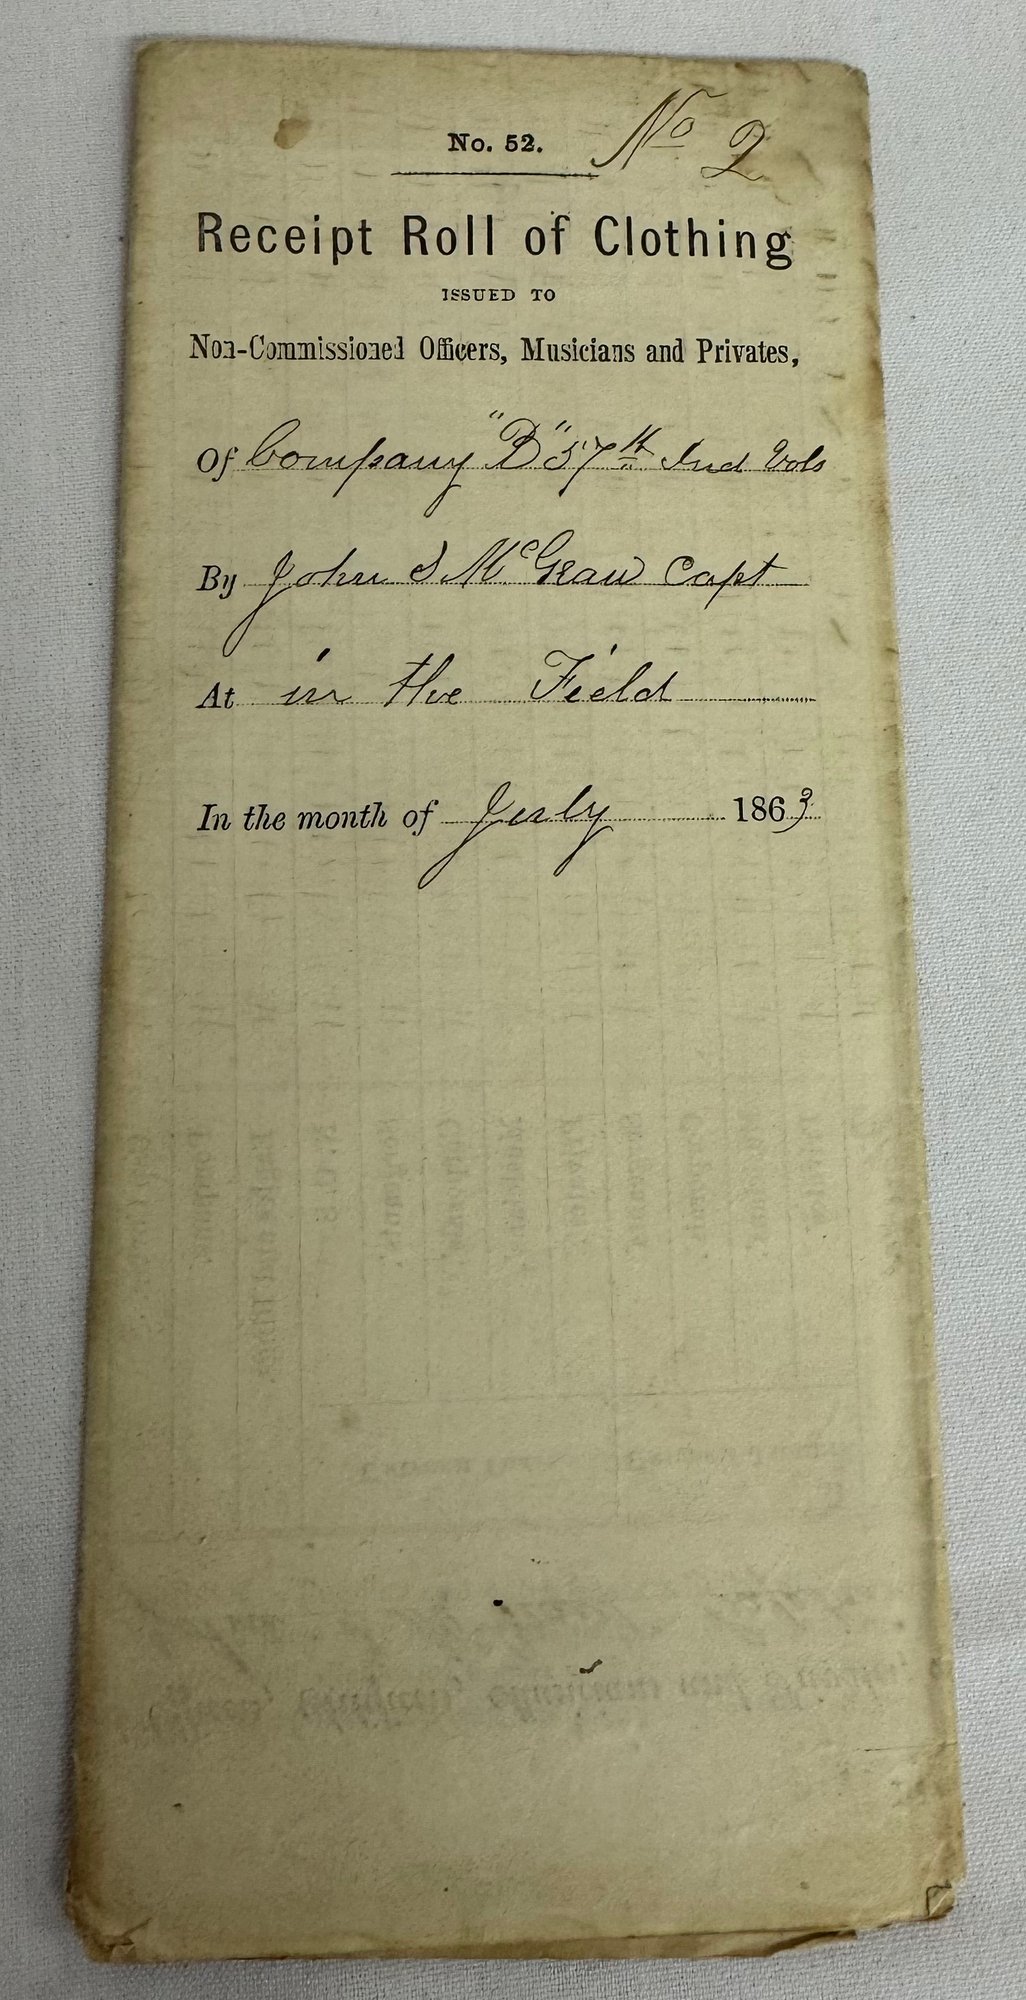 No. 52. No 2
Receipt Roll of Clothing
ISSUED TO
Non-Commissioned Officers, Musicians and Privates,
Of Company "B" 57th Ind Vols
By John S McGraw Capt
At in the Field
In the month of July 1863